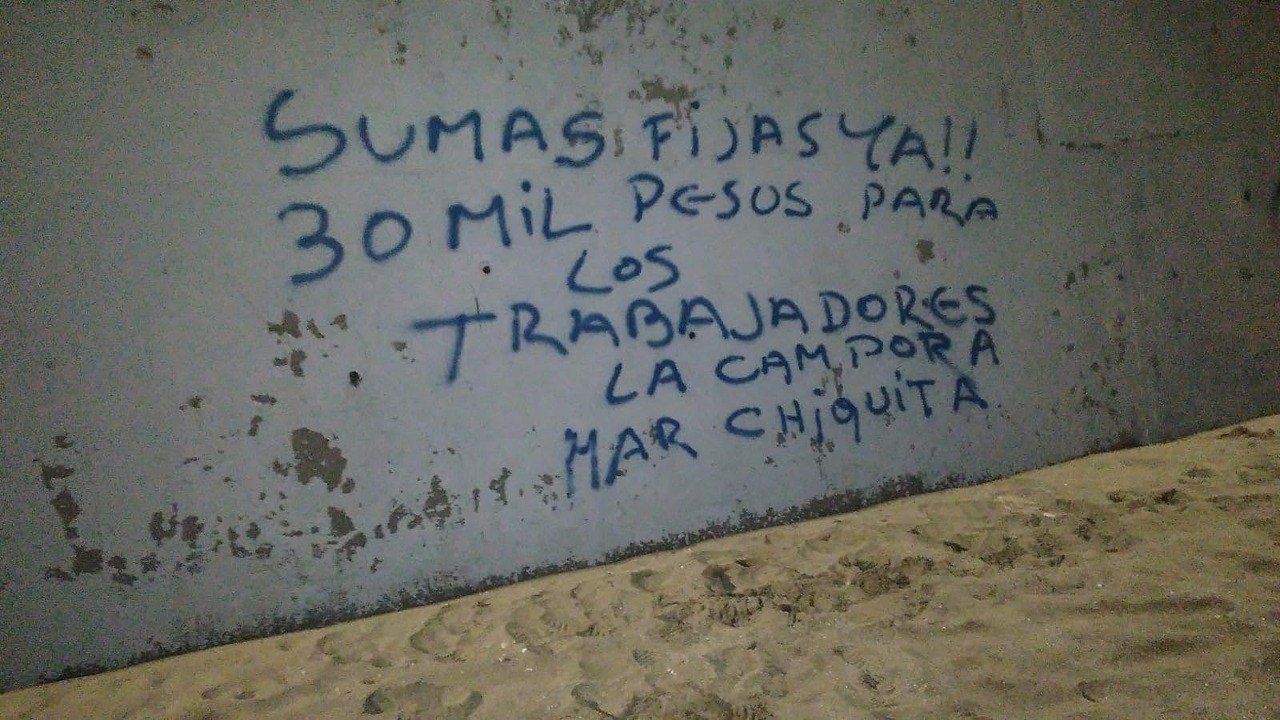 SUMAS FiJAS YA!!
30 MiL PESOS PARA
LOS
TRABAJADORES
LA CAMPORA
MAR CHiquiTA